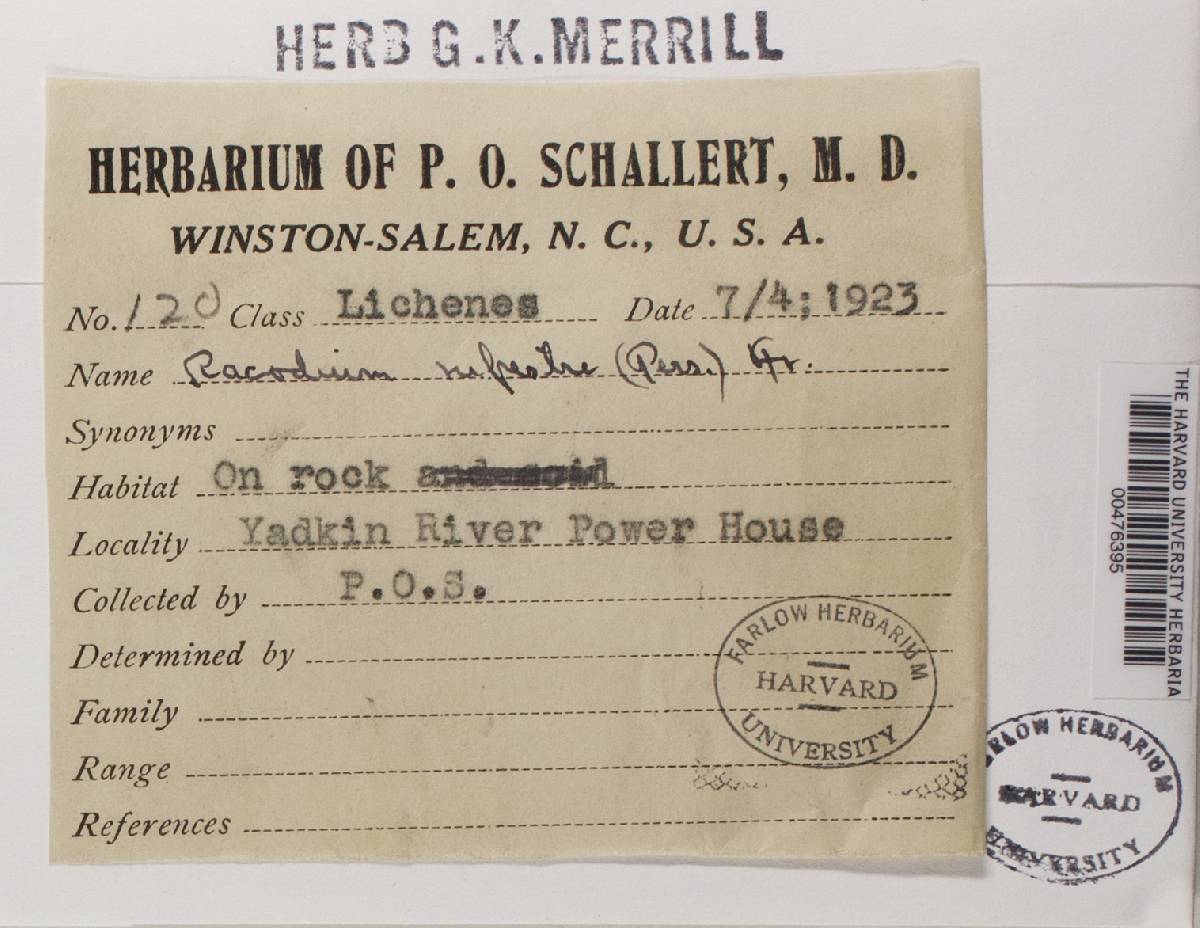 HERB G.K.MERRILL
HERBARIUM OF P. O. SCHALLERT, M. D.
WINSTON-SALEM, N. C., U. S. A.
No. 120 Class Lichenes Date 7/4; 1923
Name Racodium rupestre (Pers.) Fr.
Synonyms
Habitat On rock and soid
Locality Yadkin River Power House
Collected by P.O.S.
Determined by
Family
Range
References
FARLOW HERBARIUM
HARVARD
UNIVERSITY
THE HARVARD UNIVERSITY HERBARIA
00476395
FARLOW HERBARIUM
HARVARD
UNIVERSITY